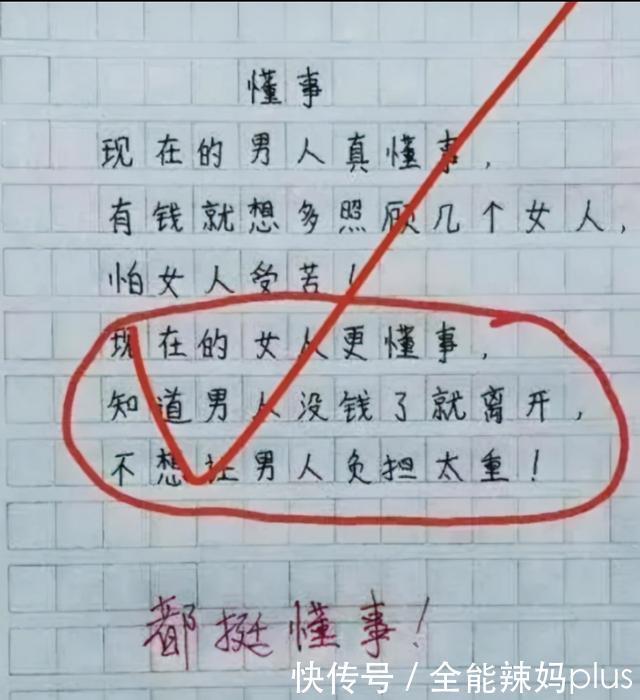 懂事
现在的男人真懂事,
有钱就想多照顾几个女人,
怕女人受苦!
现在的女人更懂事,
知道男人没钱了就离开,
不想让男人负担太重!
都挺懂事!
快传号 / 全能辣妈plus